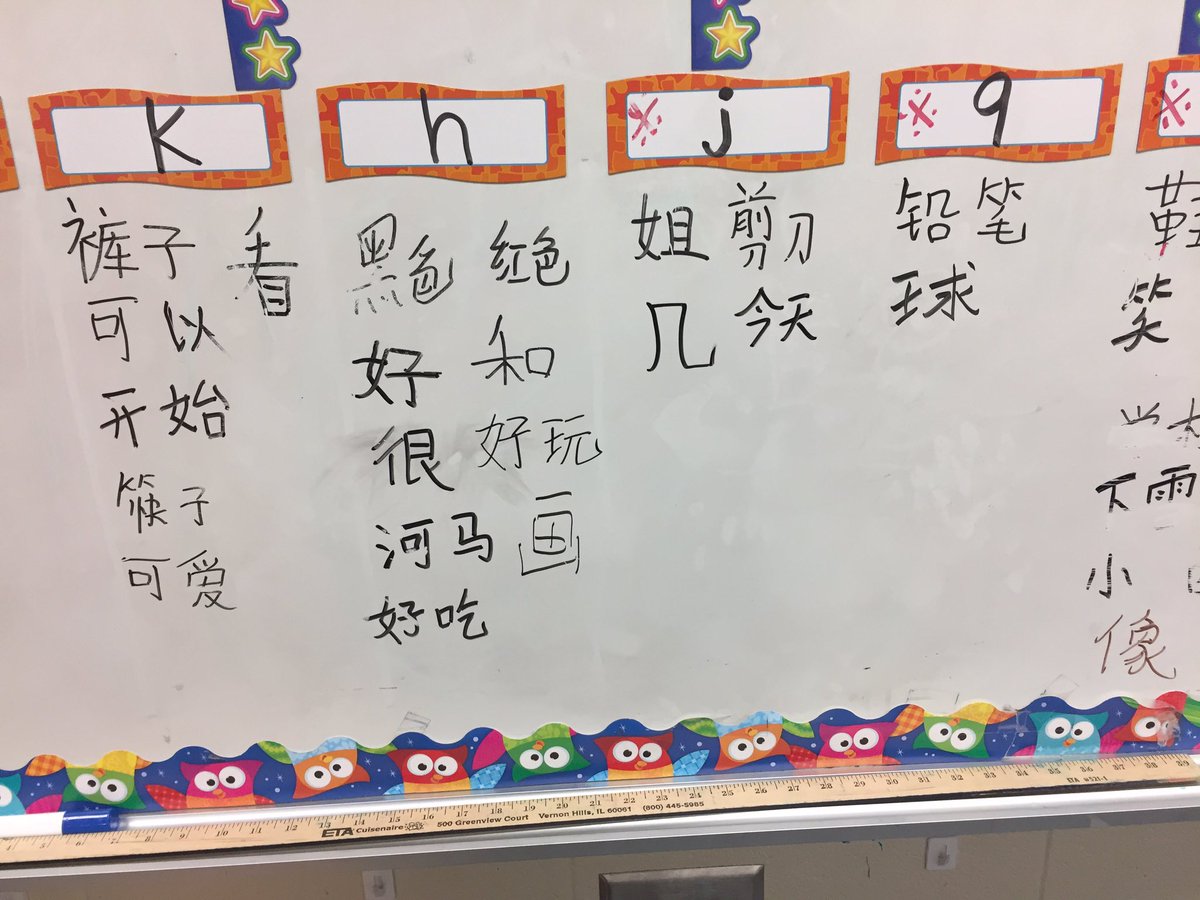 k
裤子 看
可以
开始
筷子
可爱
h
黑色 红色
好 和
很 好玩
河马 画
好吃
j
姐 剪刀
几 今天
q
铅笔
球
笑
下雨
小
像
ETA Cuisenaire 500 Greenview Court Vernon Hills, IL 60061 (800) 445-5985